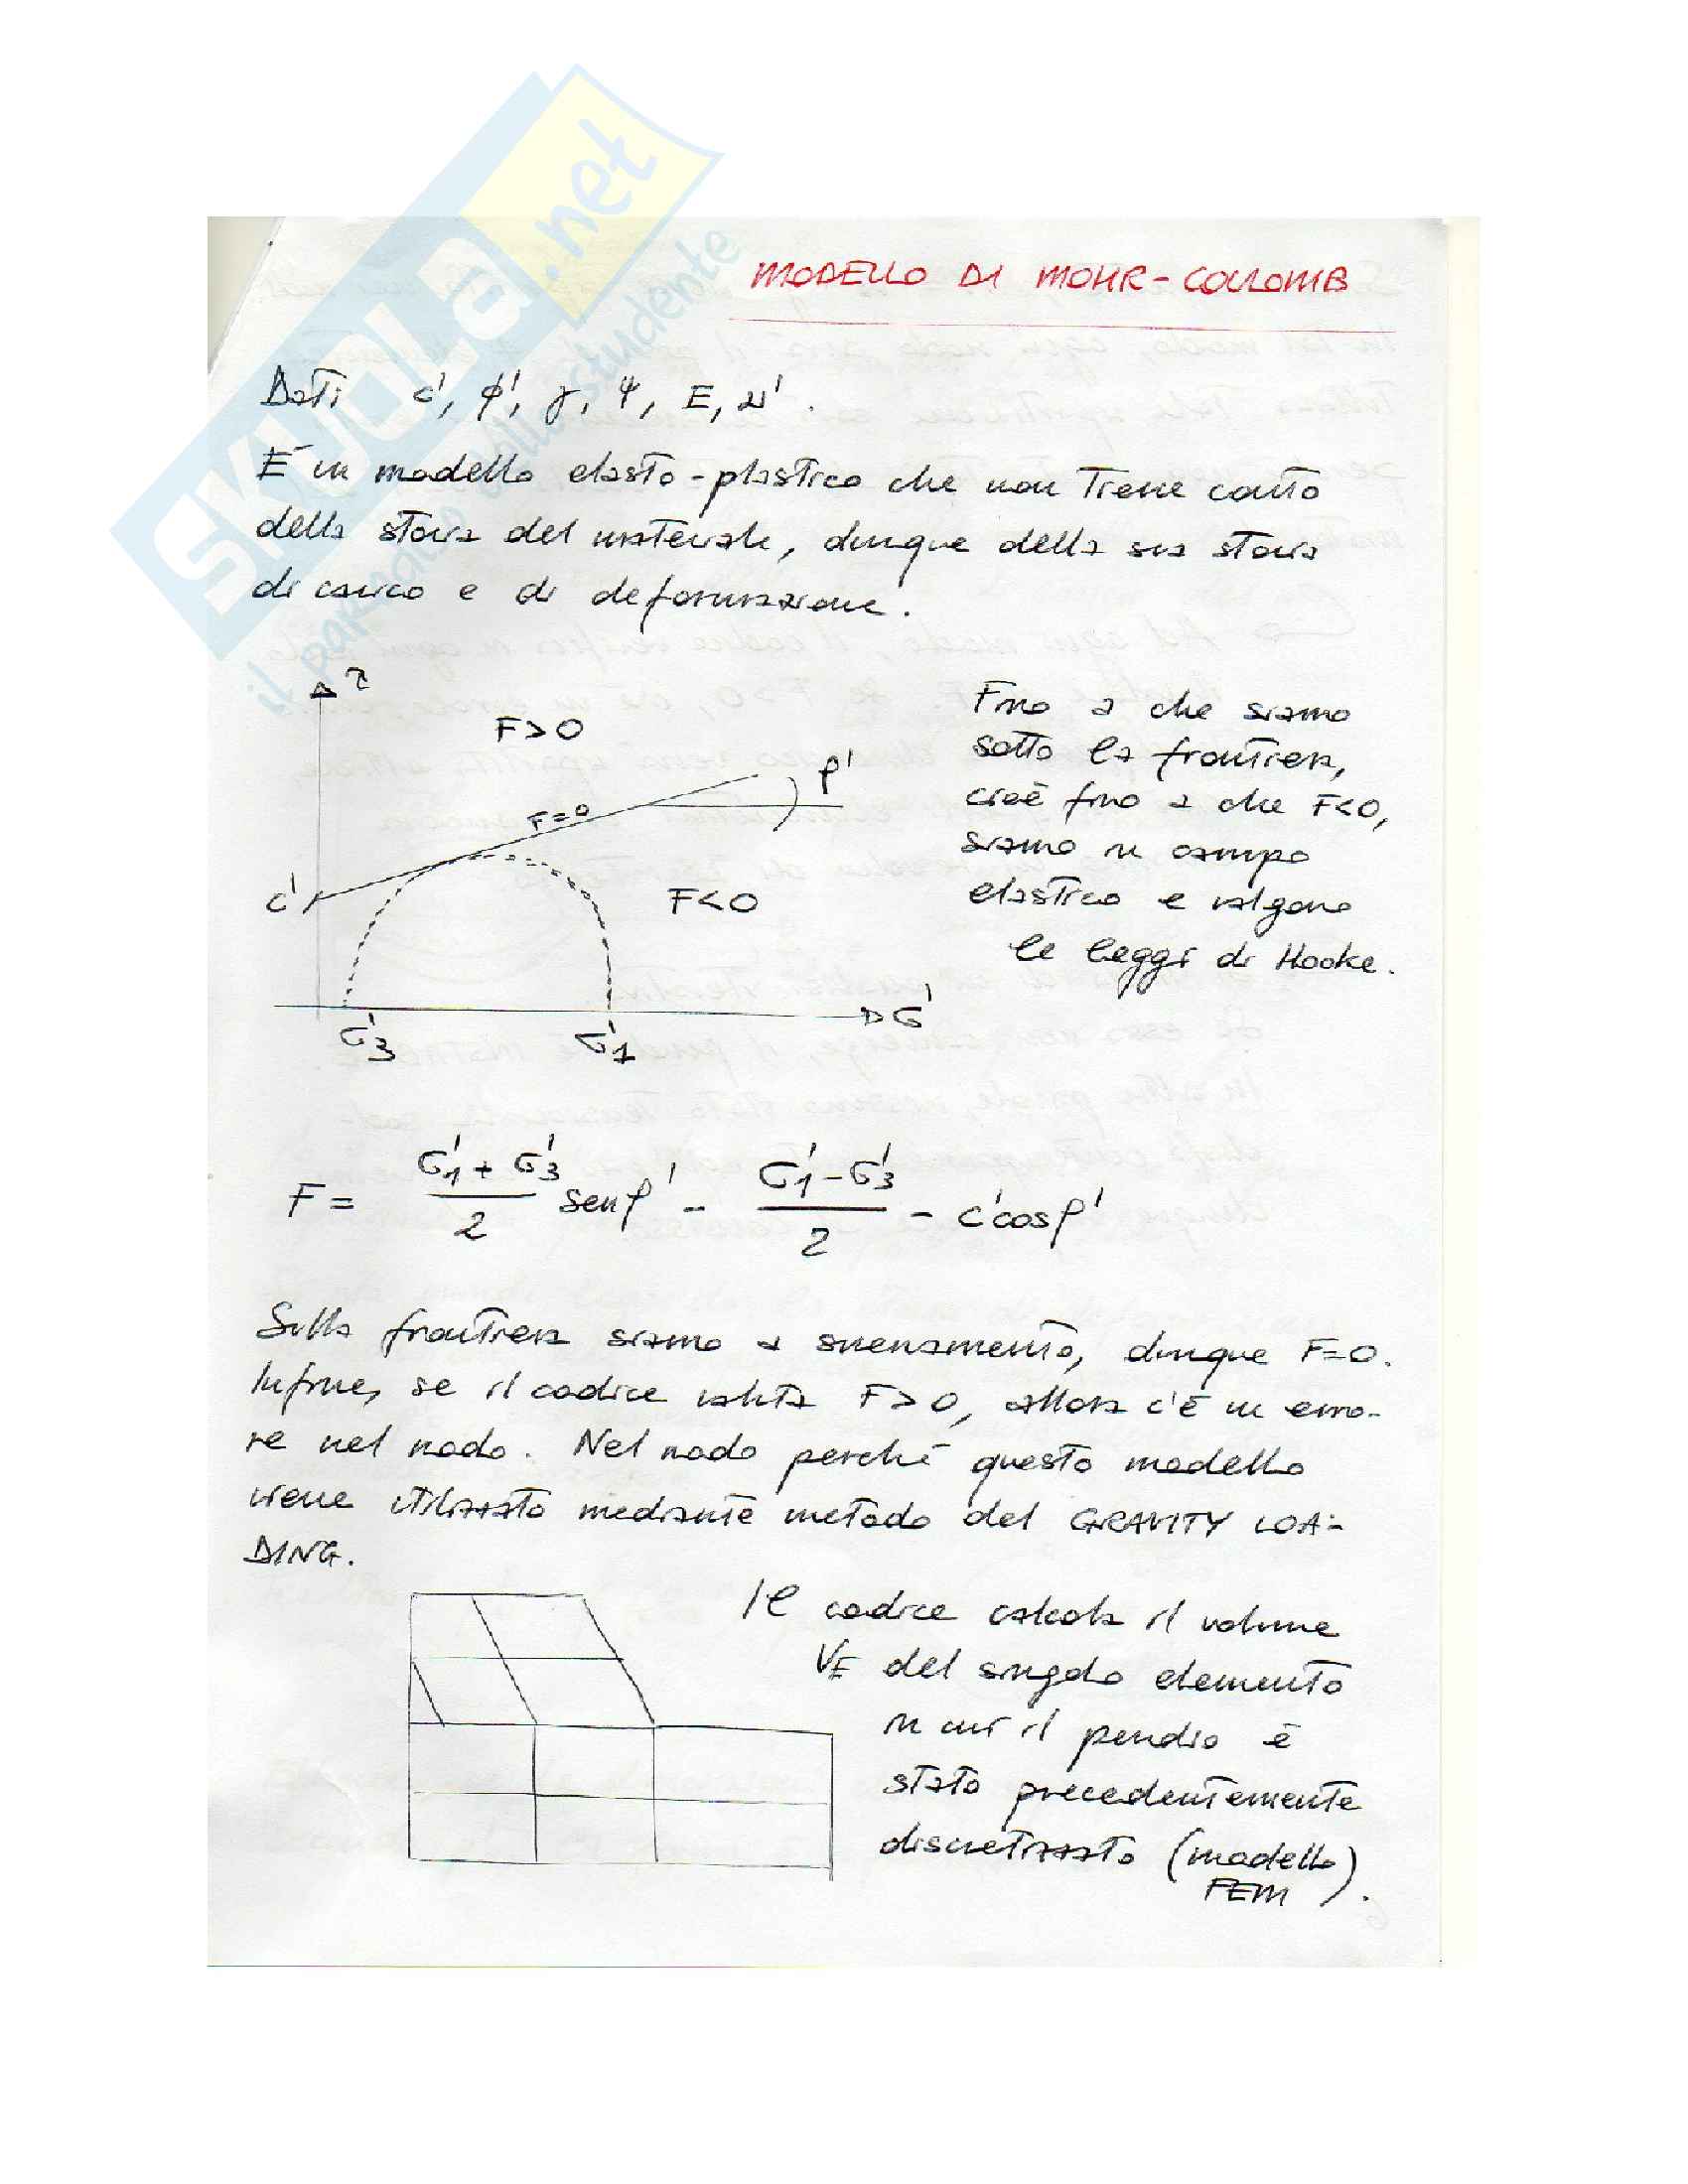 SKUOLA.net
il paradiso dello studente
MODELLO DI MOHR-COULOMB
Dati c', ϕ', γ, ψ, E, ν'.
È un modello elasto-plastico che non tiene conto
della storia del materiale, dunque della sua storia
di carico e di deformazione.
τ
F>0
φ'
F=0
c'
F<0
σ'
σ'3
σ'1
Fino a che siamo
sotto la frontiera,
cioè fino a che F<0,
siamo in campo
elastico e valgono
le leggi di Hooke.
F = (σ'1 + σ'3)/2 senφ' - (σ'1 - σ'3)/2 - c'cosφ'
Sulla frontiera siamo a snervamento, dunque F=0.
Infine, se il codice valuta F>0, allora c'è un erro-
re nel nodo. Nel nodo perché questo modello
viene utilizzato mediante metodo del GRAVITY LOA-
DING.
Il codice calcola il volume
VE del singolo elemento
in cui il pendio è
stato precedentemente
discretizzato (modello
FEM).